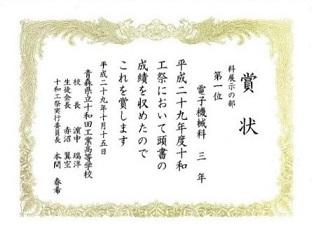 賞状
科展示の部
第一位
電子機械科 三年
平成二十九年度十和
工祭において頭書の
成績を収めたので
これを賞します
平成二十九年十月十五日
青森県立十和田工業高等学校
校長 濱中 瑞洋
生徒会長 赤沼 翼空
十和工祭実行委員長 本間 春希